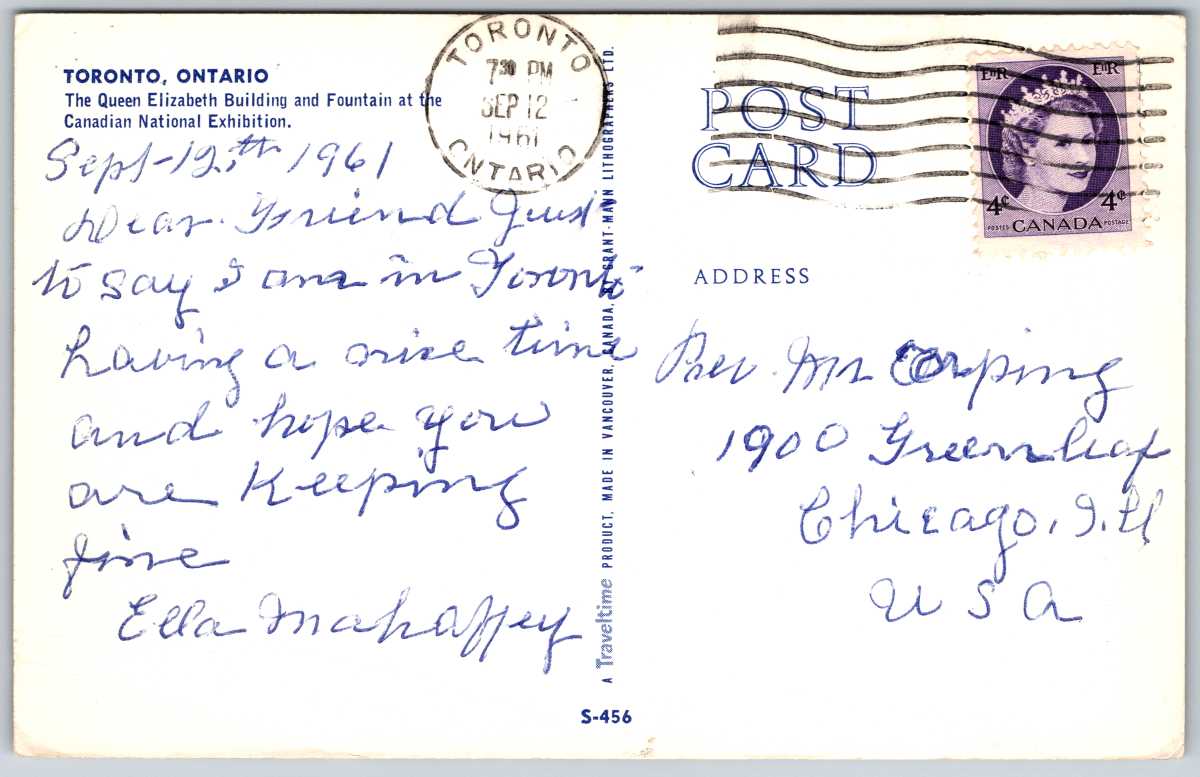 TORONTO, ONTARIO
The Queen Elizabeth Building and Fountain at the
Canadian National Exhibition.
Sept-12th 1961
Dear Friend Just
to say I am in Toronto
having a nice time
and hope you
are Keeping
fine
Ella Mahaffey
TORONTO
7 30 PM
SEP 12
1961
ONTARIO
A Traveltime PRODUCT, MADE IN VANCOUVER, CANADA, BY GRANT-MANN LITHOGRAPHERS LTD.
S-456
POST
CARD
EIIR EIIR
4¢ 4¢
POSTES CANADA POSTAGE
ADDRESS
Rev. Mr Erping
1900 Greenleaf
Chicago, Ill
U S A